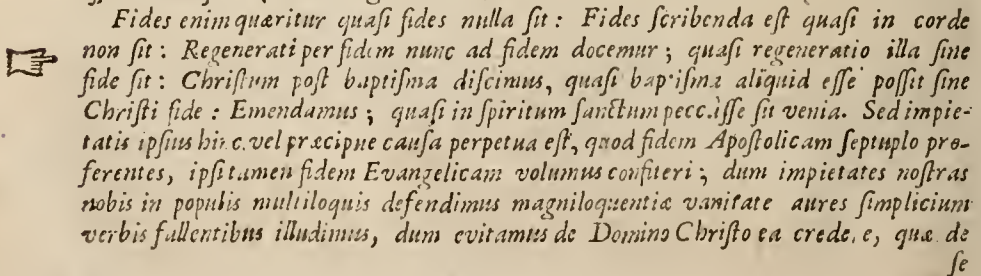 Fides enim quæritur quaſi fides nulla ſit : Fides ſcribenda eſt quaſi in corde
non ſit : Regenerati per fidem nunc ad fidem docemur ; quaſi regeneratio illa ſine
fide ſit : Chriſtum poſt baptiſma diſcimus, quaſi baptiſma aliquid eſſe poſſit ſine
Chriſti fide : Emendamus ; quaſi in ſpiritum ſanctum peccaſſe ſit venia. Sed impie-
tatis ipſius hinc vel præcipue cauſa perpetua eſt, quod fidem Apoſtolicam ſeptuplo pro-
ferentes, ipſi tamen fidem Evangelicam volumus confiteri ; dum impietates noſtras
nobis in populis multiloquis defendimus magniloquentiæ vanitate aures ſimplicium
verbis fallentibus illudimus, dum evitamus de Domino Chriſto ea credere, quæ de
ſe